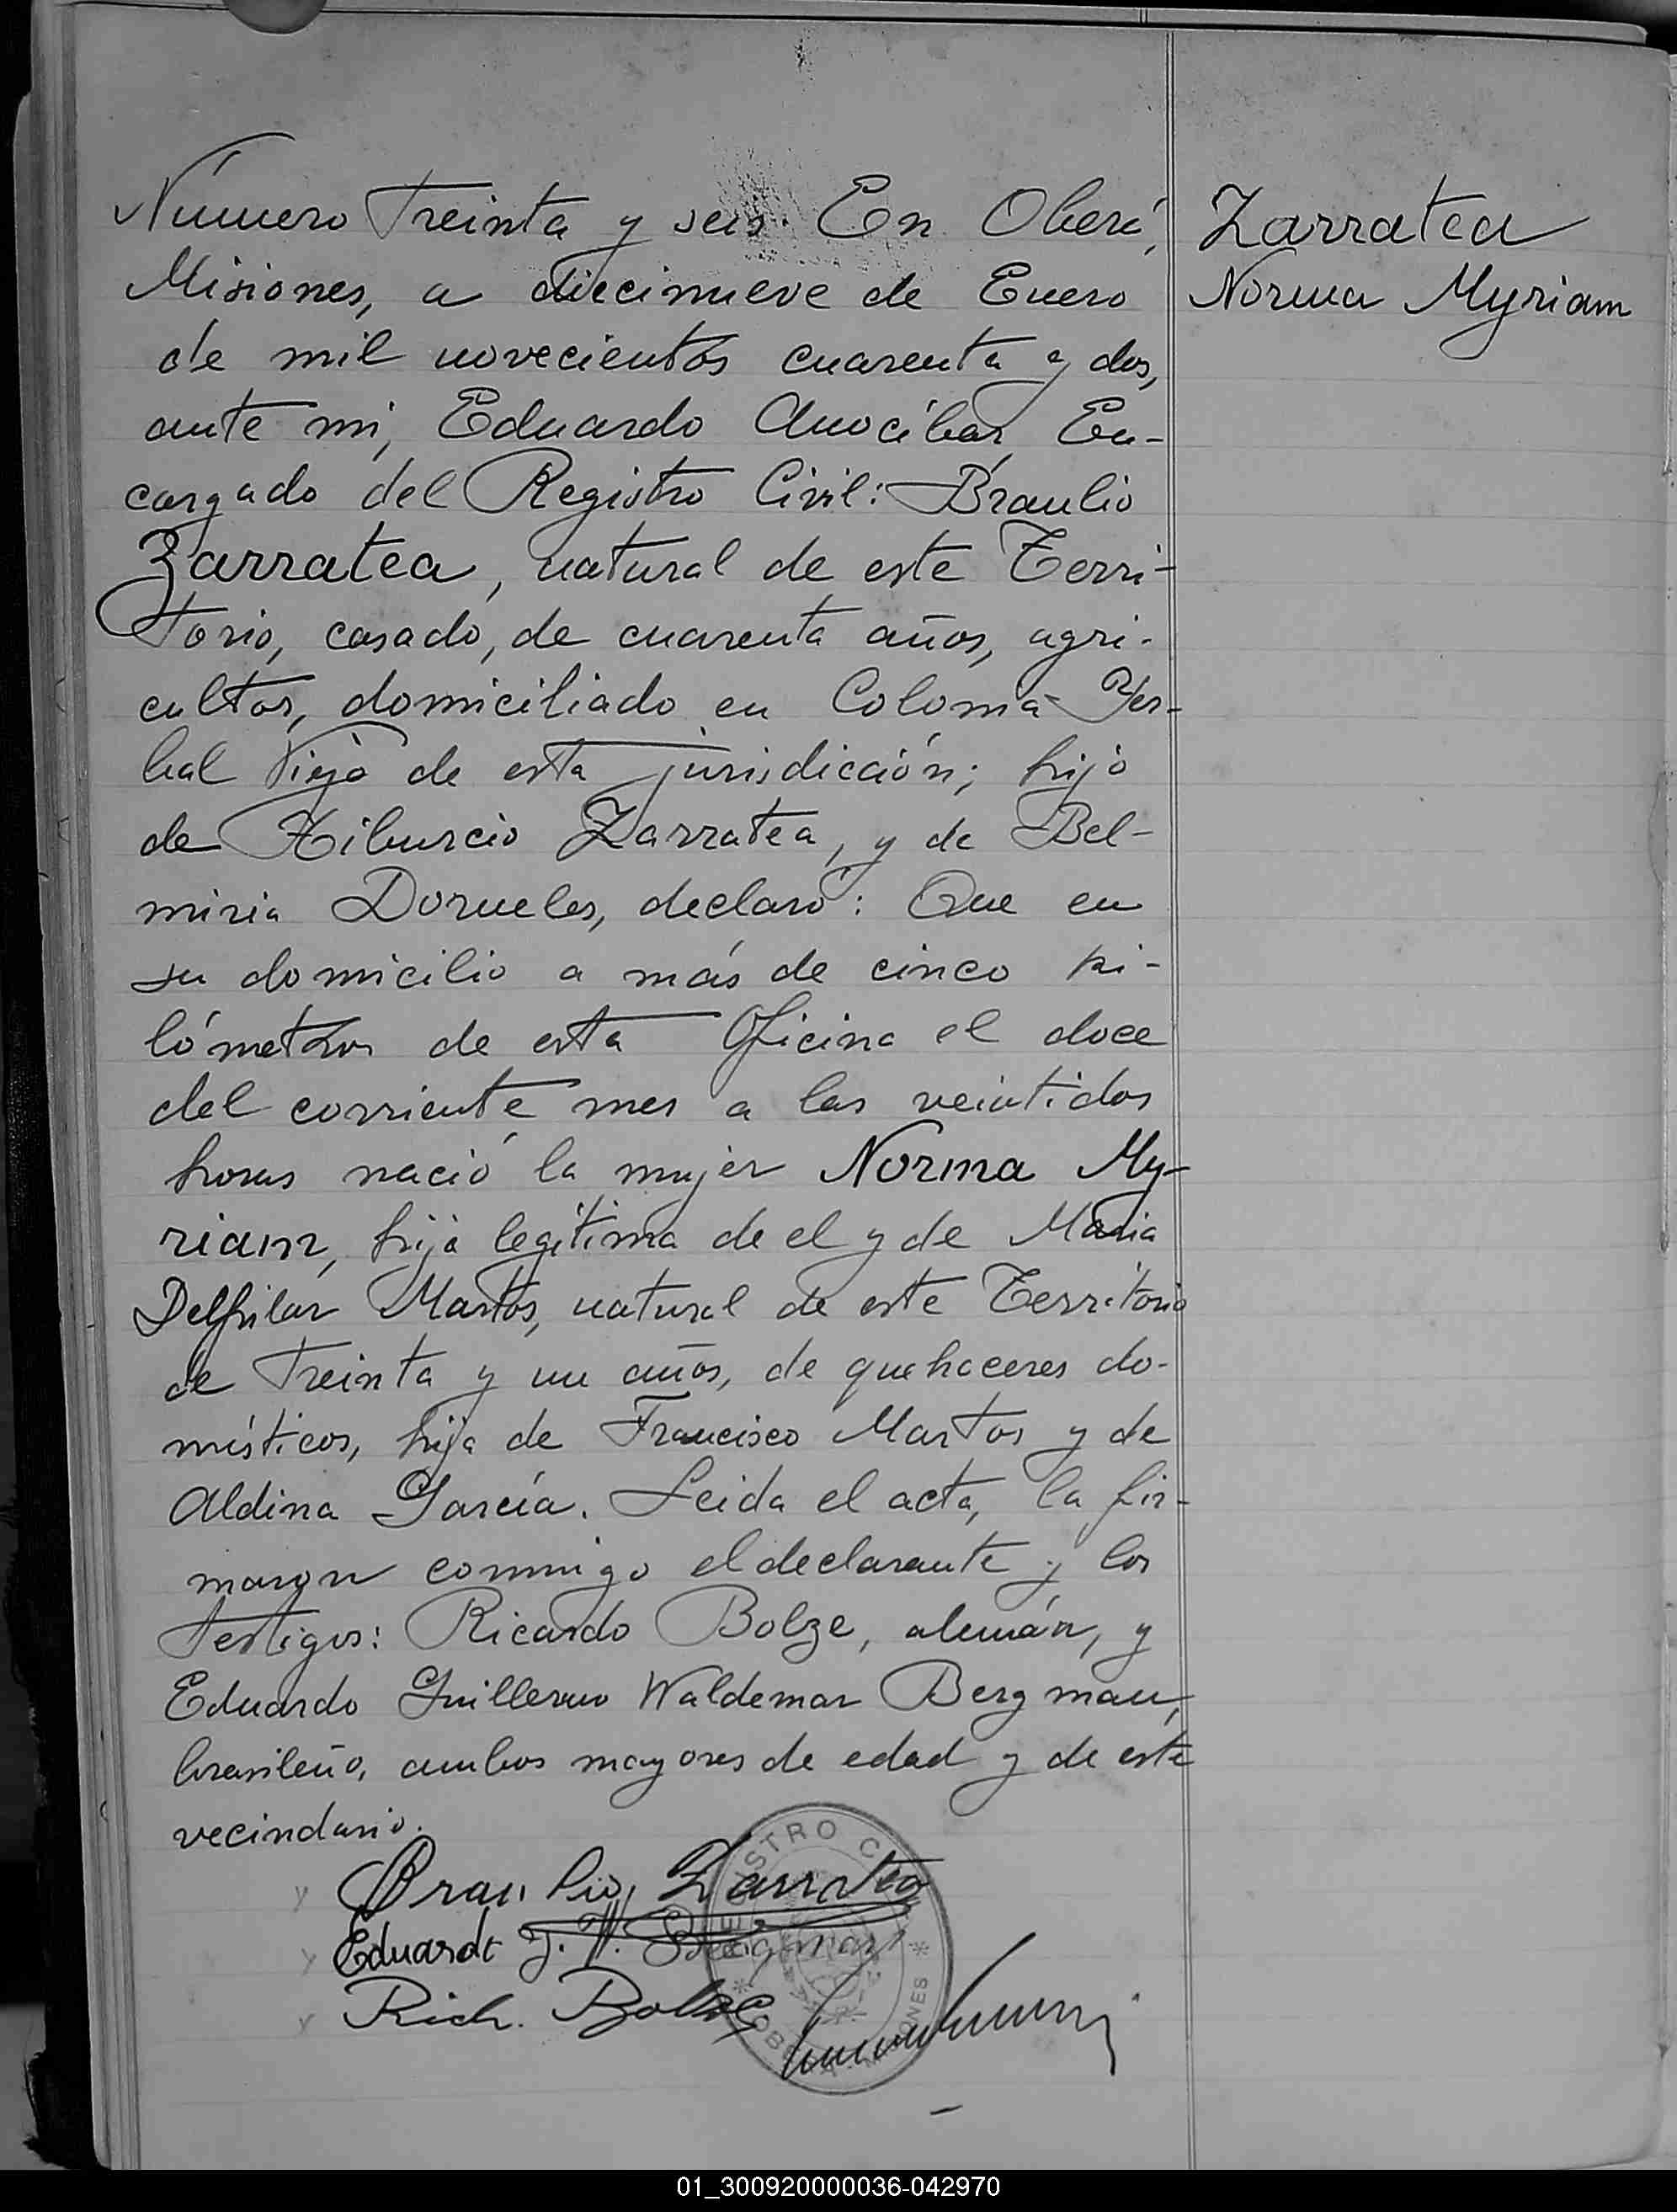 Número Treinta y seis. En Oberá,
Misiones, a diecinueve de Enero
de mil novecientos cuarenta y dos,
ante mi, Eduardo Anocíbar, En-
cargado del Registro Civil: Braulio
Zarratea, natural de este Terri-
torio, casado, de cuarenta años, agri-
cultor, domiciliado en Colonia Yer-
bal Viejo de esta jurisdicción; hijo
de Tiburcio Zarratea, y de Bel-
miria Dorneles, declaró: Que en
su domicilio a más de cinco ki-
lómetros de esta Oficina el doce
del corriente mes a las veintidos
horas nació la mujer Norma My-
riam, hija legítima de el y de Maria
Delpilar Martos, natural de este Territorio
de treinta y un años, de quehaceres do-
místicos, hija de Francisco Martos y de
Aldina García. Leida el acta, la fir-
maron conmigo el declarante y los
testigos: Ricardo Bolze, alemán, y
Eduardo Guillermo Waldemar Bergman,
brasileño, ambos mayores de edad y de este
vecindario.
Zarratea
Norma Myriam
Braulio Zarratea
Eduardo G. W. Bergman
Rich. Bolze
REGISTRO CIVIL
OBERA MISIONES
01_300920000036-042970